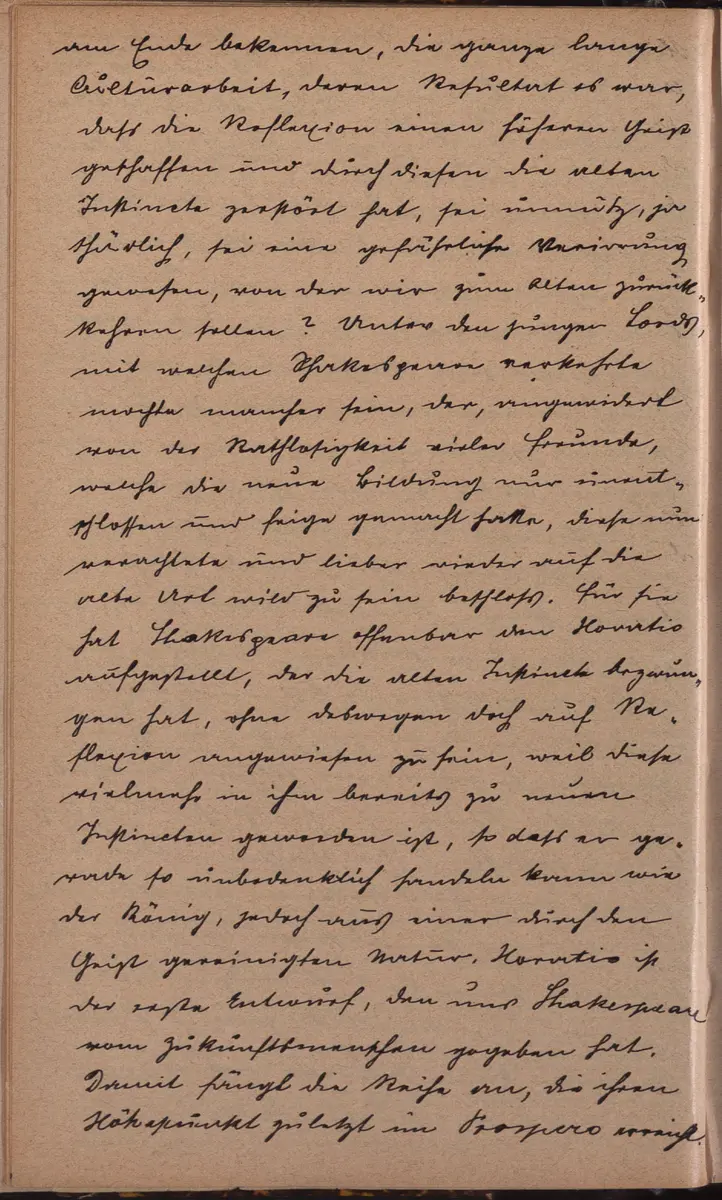 am Ende bekennen, die ganze lange
Culturarbeit, deren Resultat es war,
dass die Reflexion einen höheren Geist
geschaffen und durch diesen die alten
Instincte zerstört hat, sei unnütz, ja
schädlich, sei eine gefährliche Verirrung
gewesen, von der wir zum Alten zurück-
kehren sollen? Unter den jungen Lords,
mit welchen Shakespeare verkehrte
mochte mancher sein, der, angewidert
von der Rathlosigkeit vieler Freunde,
welche die neue Bildung nur unent-
schlossen und feige gemacht hatte, diese nun
verachtete und lieber wieder auf die
alte Art wild zu sein beschloss. Für sie
hat Shakespeare offenbar den Horatio
aufgestellt, der die alten Instincte bezwun-
gen hat, ohne deswegen doch auf Re-
flexion angewiesen zu sein, weil diese
vielmehr in ihm bereits zu neuen
Instincten geworden ist, so dass er ge-
rade so unbedenklich handeln kann wie
der König, jedoch aus einer durch den
Geist gereinigten Natur. Horatio ist
der erste Entwurf, den uns Shakespeare
vom Zukunftsmenschen gegeben hat.
Damit fängt die Reihe an, die ihren
Höhepunkt zuletzt im Prospero erreicht.